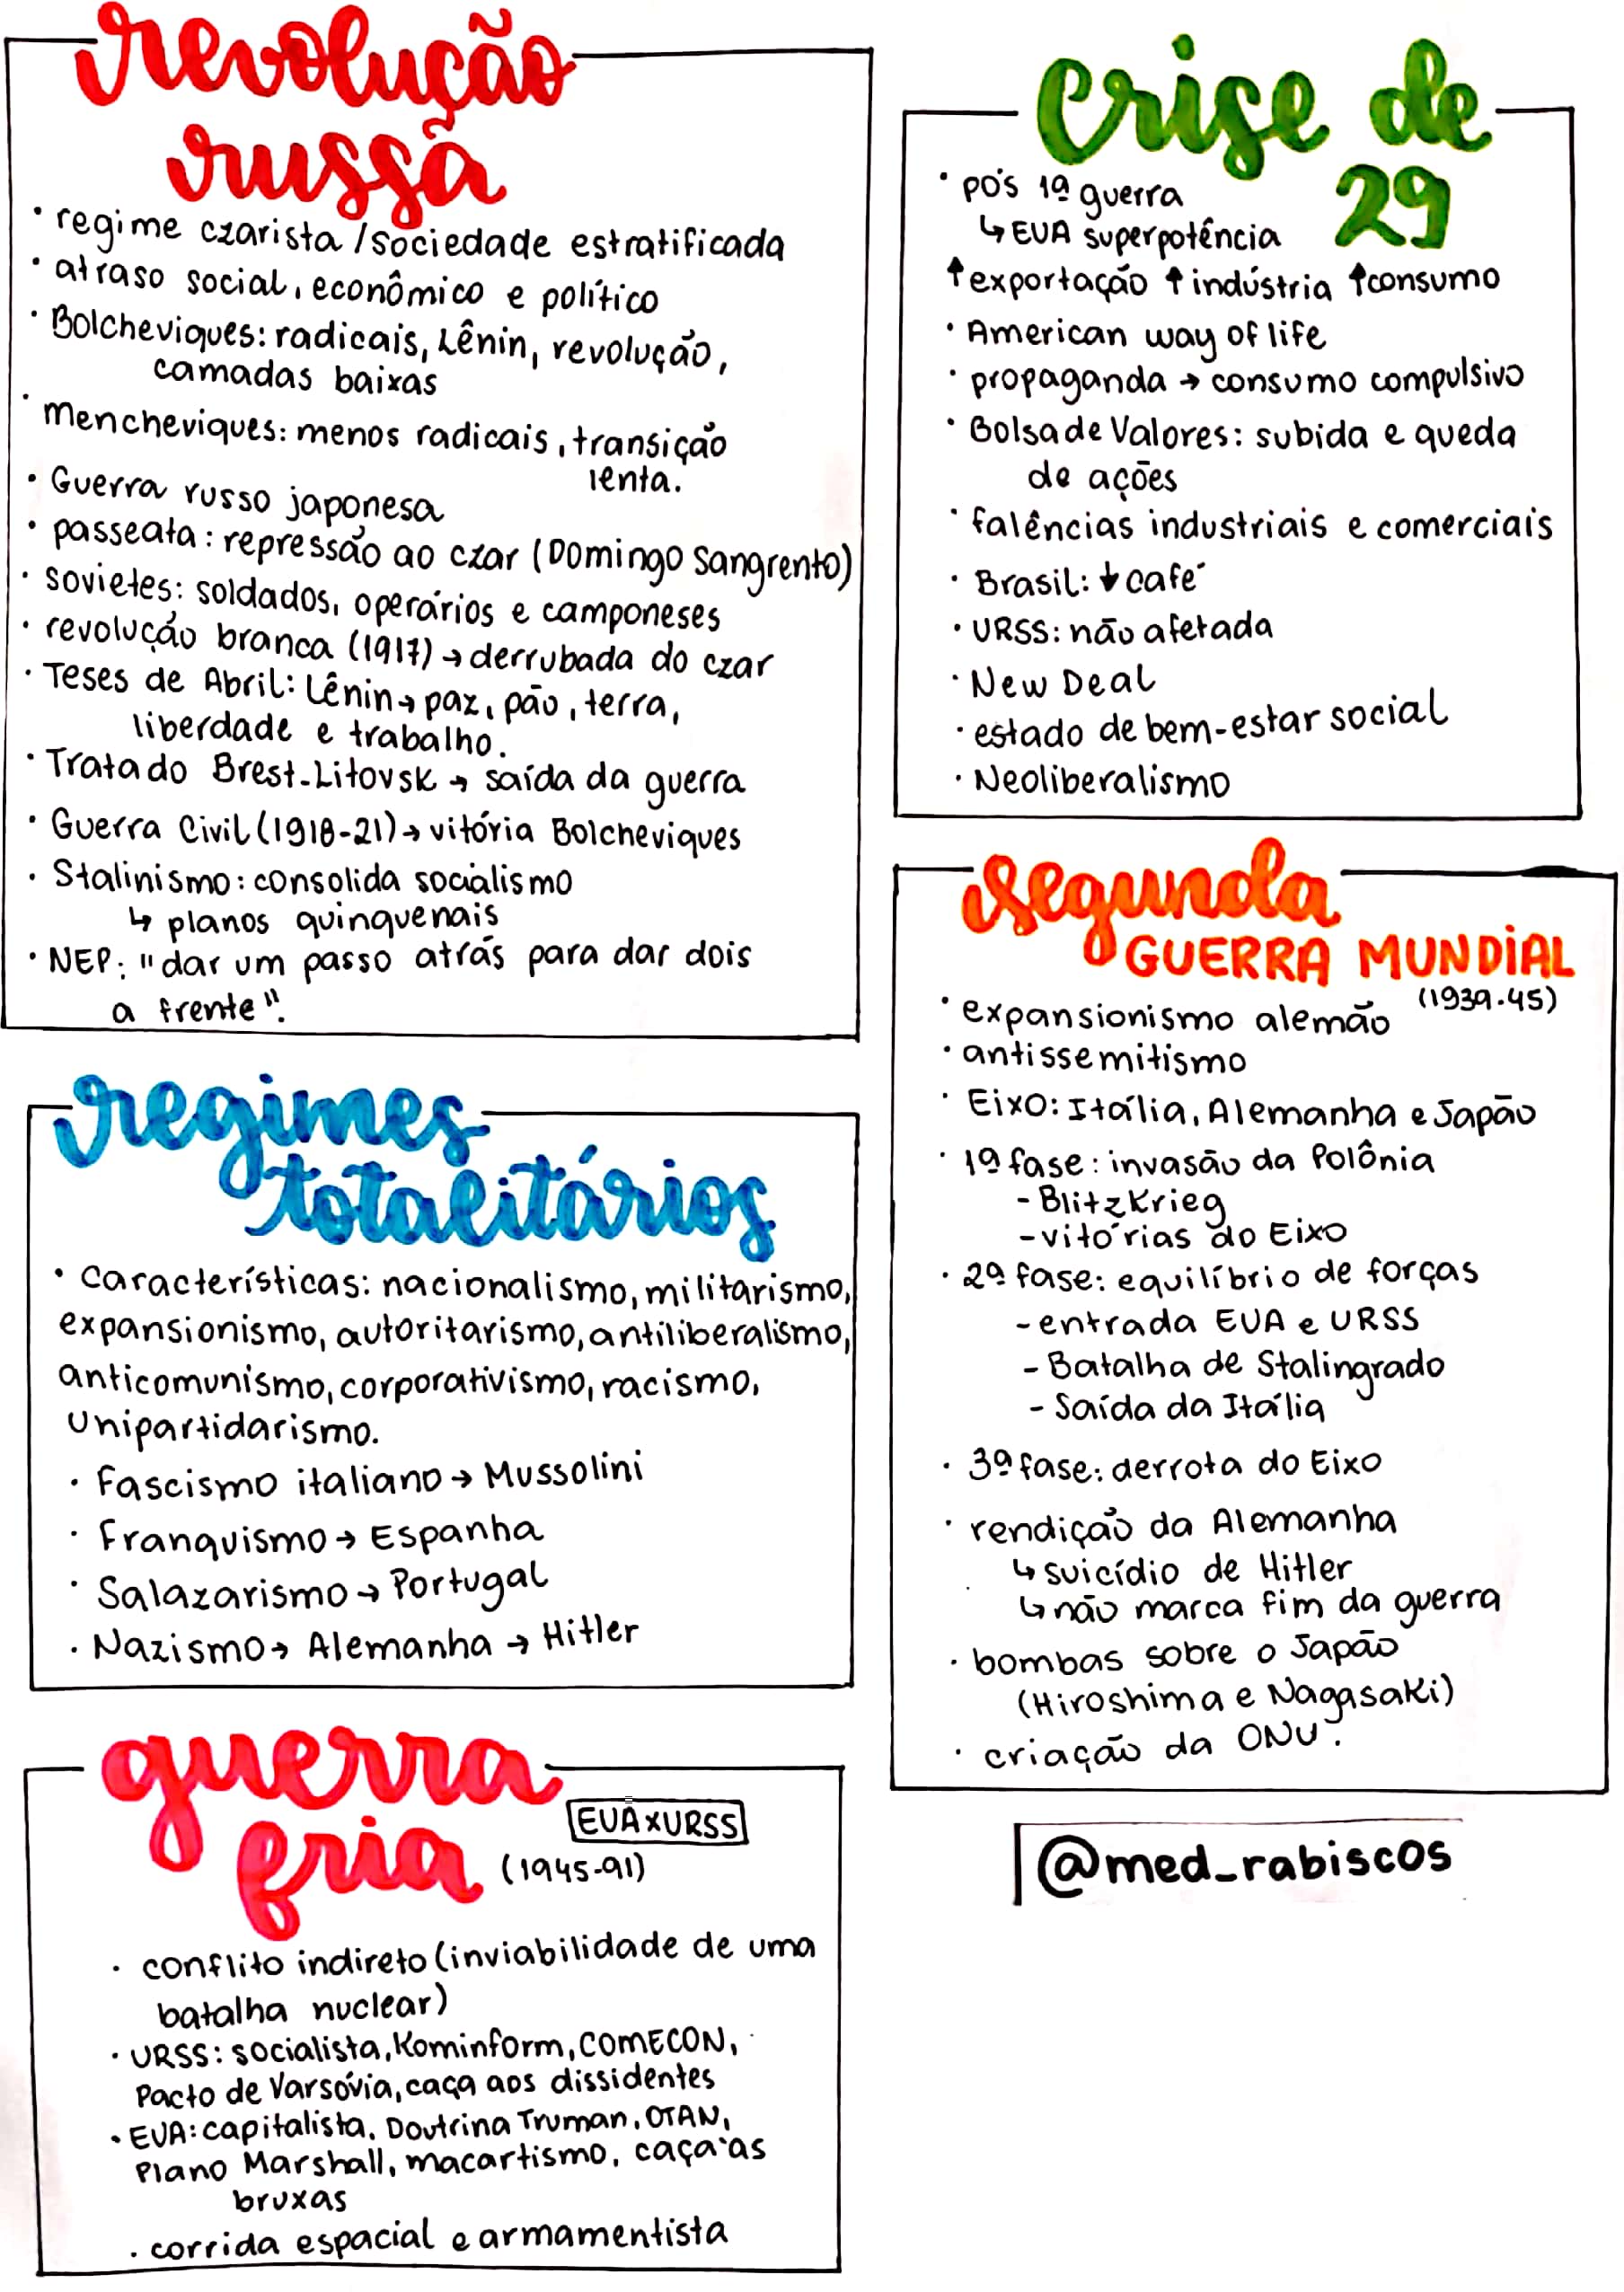 revolução
russa
· regime czarista / sociedade estratificada
· atraso social, econômico e político
· Bolcheviques: radicais, Lênin, revolução,
camadas baixas
· Mencheviques: menos radicais, transição
lenta.
· Guerra russo japonesa
· passeata: repressão ao czar (Domingo Sangrento)
· sovietes: soldados, operários e camponeses
· revolução branca (1917) → derrubada do czar
· Teses de Abril: Lênin → paz, pão, terra,
liberdade e trabalho.
· Tratado Brest-Litovsk → saída da guerra
· Guerra Civil (1918-21) → vitória Bolcheviques
· Stalinismo: consolida socialismo
↳ planos quinquenais
· NEP: "dar um passo atrás para dar dois
a frente".
regimes
totalitários
· características: nacionalismo, militarismo,
expansionismo, autoritarismo, antiliberalismo,
anticomunismo, corporativismo, racismo,
unipartidarismo.
· Fascismo italiano → Mussolini
· Franquismo → Espanha
· Salazarismo → Portugal
· Nazismo → Alemanha → Hitler
guerra
fria
EUA x URSS
(1945-91)
· conflito indireto (inviabilidade de uma
batalha nuclear)
· URSS: socialista, Kominform, COMECON,
Pacto de Varsóvia, caça aos dissidentes
· EUA: capitalista, Doutrina Truman, OTAN,
Plano Marshall, macartismo, caça às
bruxas
· corrida espacial e armamentista
crise de
29
· pós 1ª guerra
↳ EUA superpotência
↑ exportação ↑ indústria ↑ consumo
· American way of life
· propaganda → consumo compulsivo
· Bolsa de Valores: subida e queda
de ações
· falências industriais e comerciais
· Brasil: ↓ café
· URSS: não afetada
· New Deal
· estado de bem-estar social
· Neoliberalismo
segunda
GUERRA MUNDIAL
(1939-45)
· expansionismo alemão
· antissemitismo
· Eixo: Itália, Alemanha e Japão
· 1ª fase: invasão da Polônia
- Blitzkrieg
- vitórias do Eixo
· 2ª fase: equilíbrio de forças
- entrada EUA e URSS
- Batalha de Stalingrado
- Saída da Itália
· 3ª fase: derrota do Eixo
· rendição da Alemanha
↳ suicídio de Hitler
↳ não marca fim da guerra
· bombas sobre o Japão
(Hiroshima e Nagasaki)
· criação da ONU.
@med_rabiscos